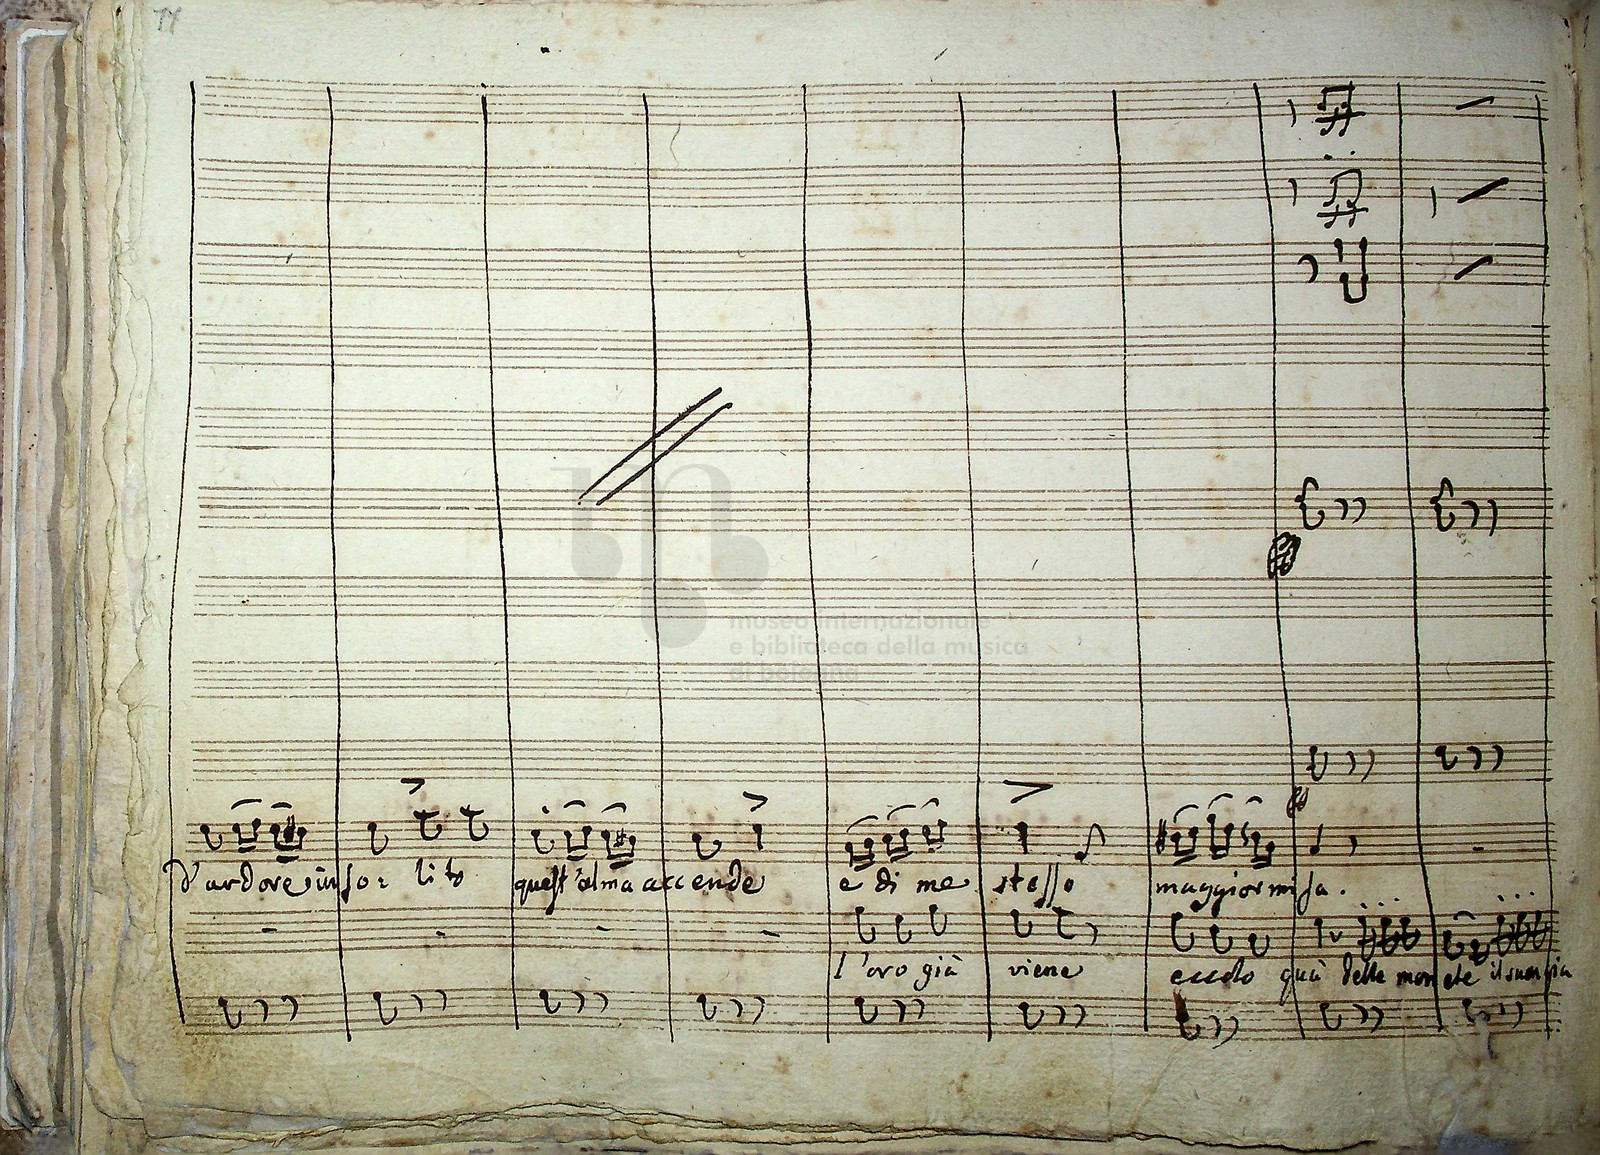 museo internazionale
e biblioteca della musica
di bologna
D'ardore inso: lito quest'alma accende e di me stesso maggior mi fa.
l'oro già viene eccolo quà delle monete il suon già